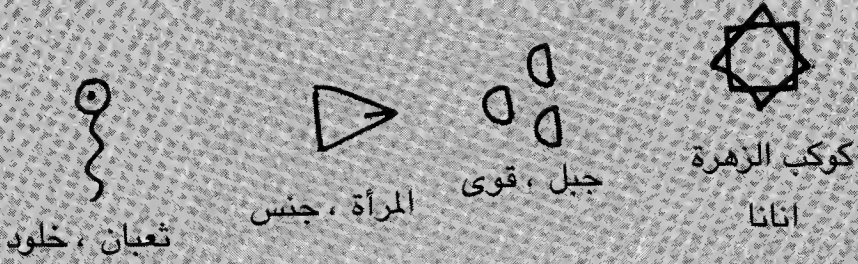 كوكب الزهرة
انانا
جبل ، قوى
المرأة ، جنس
ثعبان ، خلود